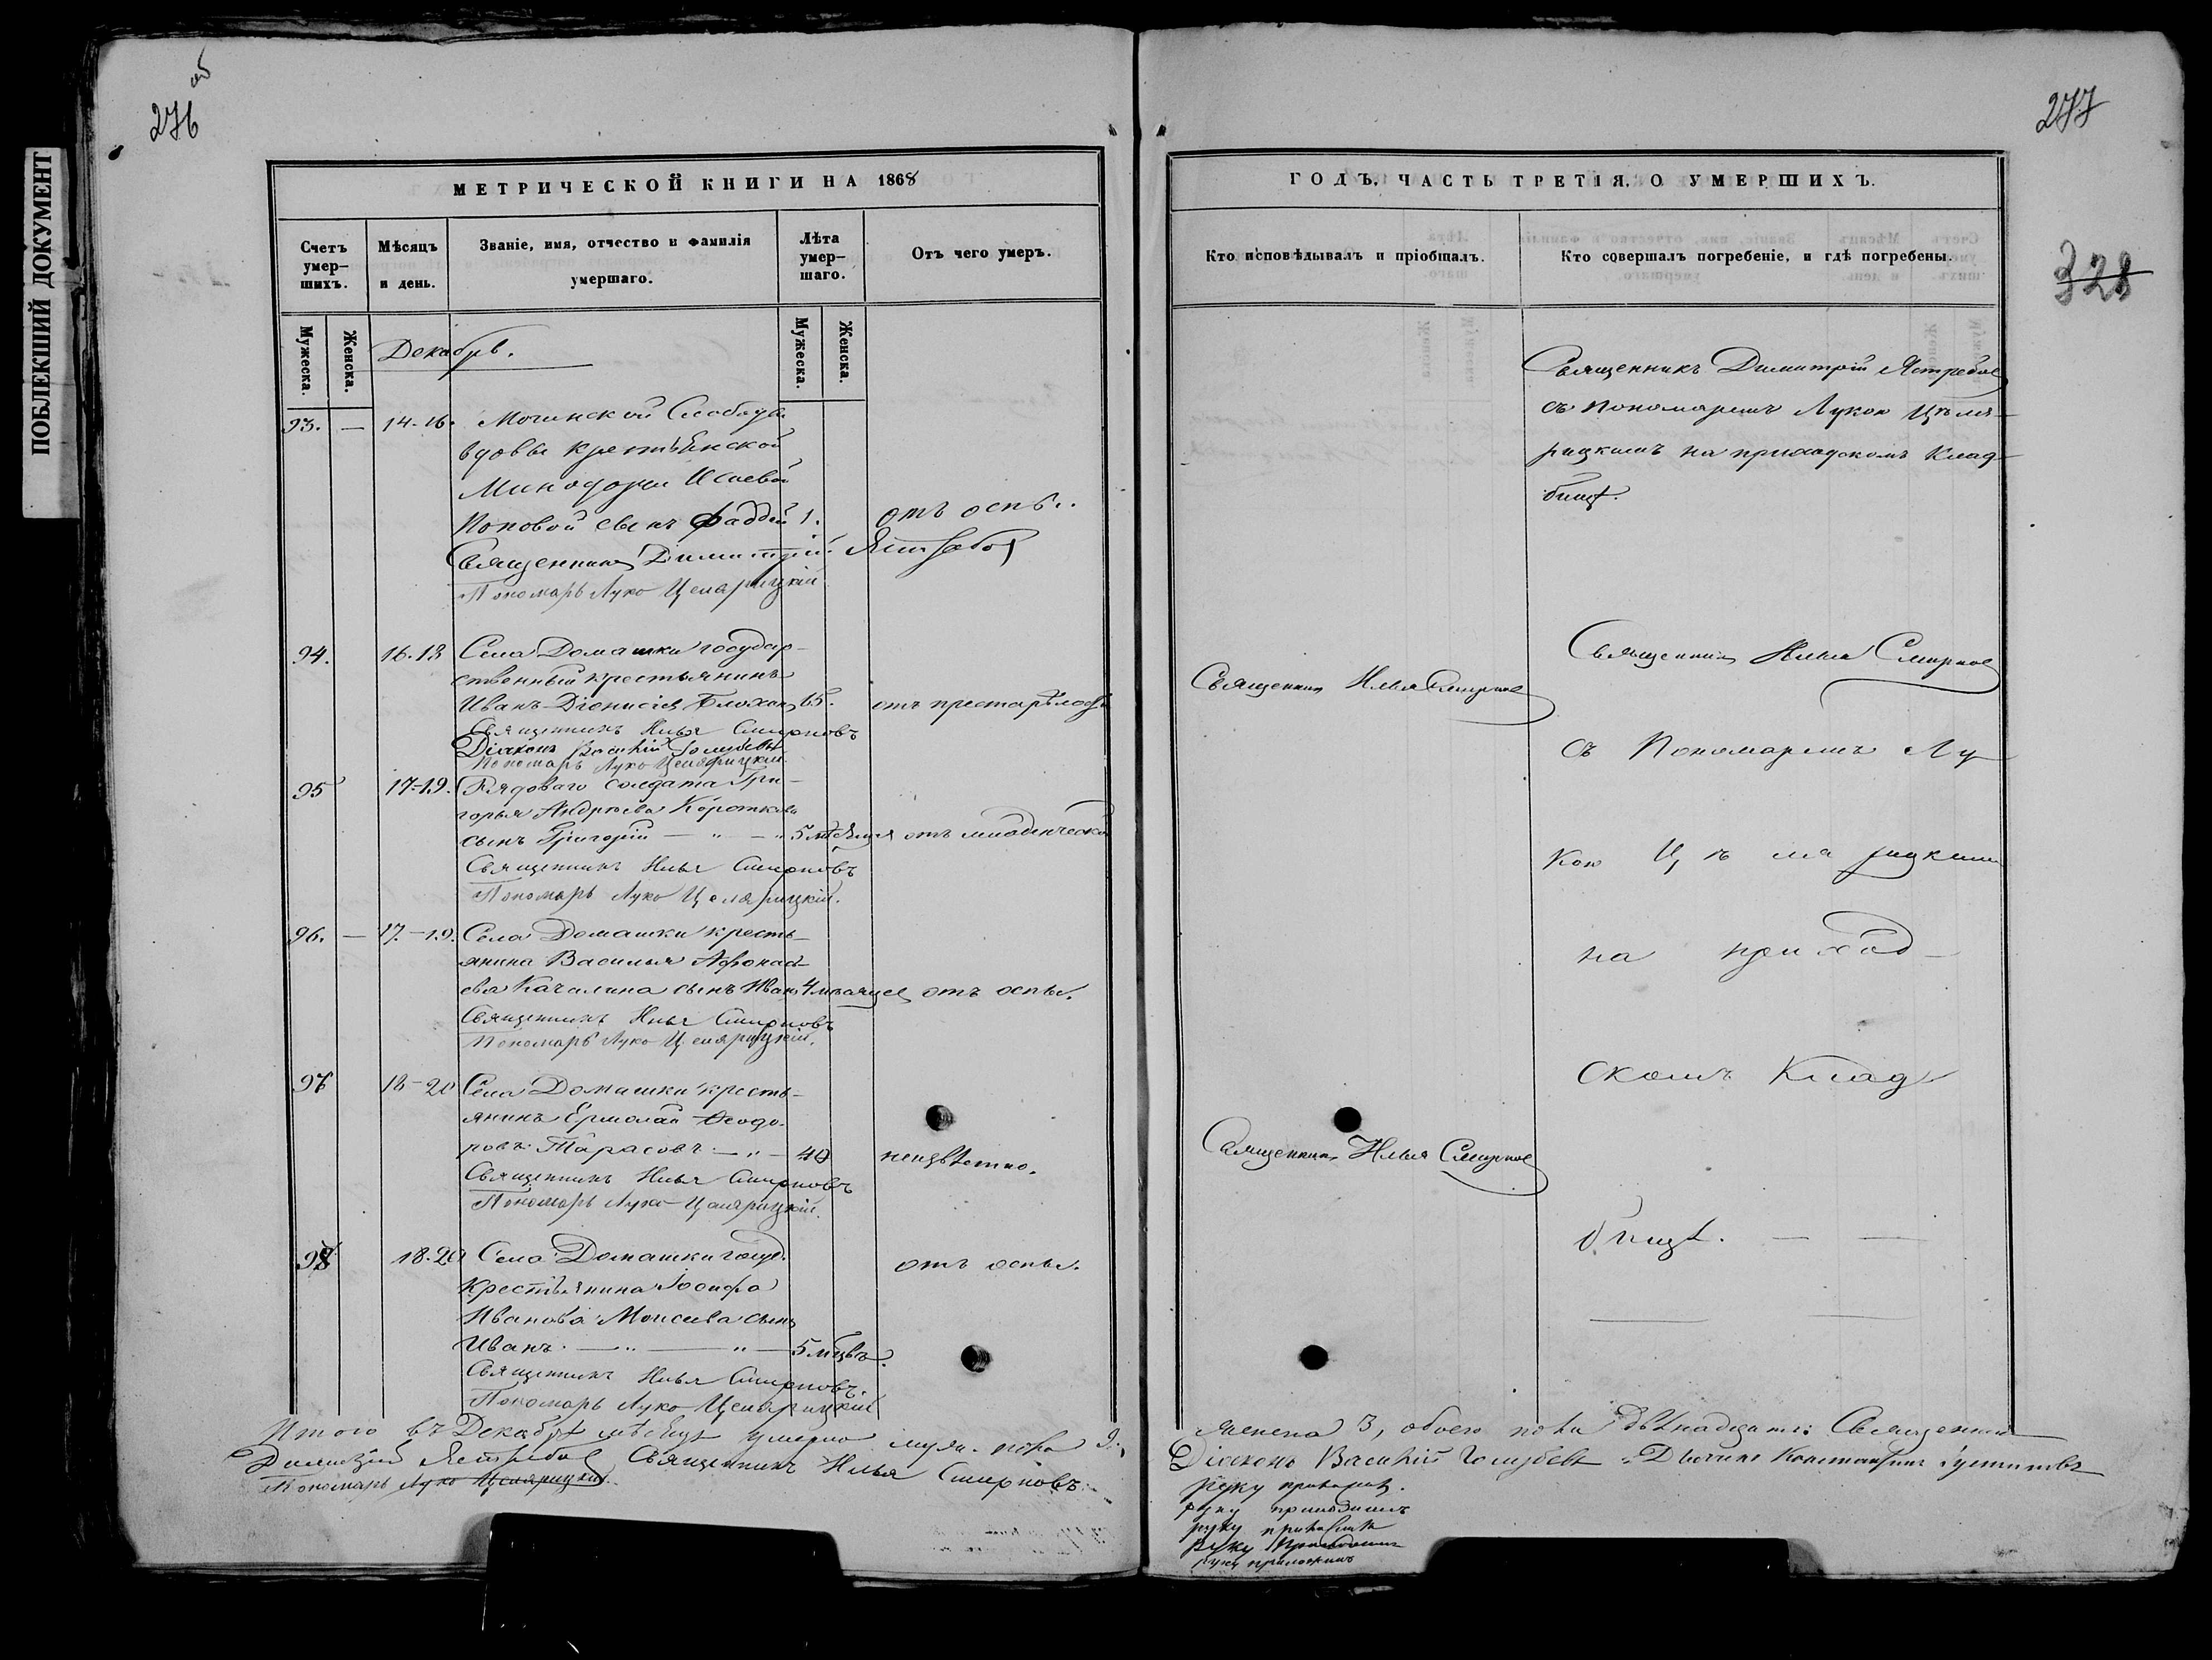 276
об
ПОБЛЕКШИЙ ДОКУМЕНТ
МЕТРИЧЕСКОЙ КНИГИ НА 1868
Счетъ умер-шихъ.
Мѣсяцъ и день.
Званіе, имя, отчество и фамилія умершаго.
Лѣта умер-шаго.
Отъ чего умеръ.
Мужеска.
Женска.
Мужеска.
Женска.
Декабрь.
93. — 14-16. Мочинской Слободы
вдовы крестьянской
Минодоры Исаевой
Поповой сынъ Фаддей 1. отъ оспы.
Священникъ Димитрій Ястребов
Пономарь Луко Цемярицкій
94. 16.18 Села Домашки государ-
ственный крестьянинъ
Иванъ Діонисіев 65. отъ престарѣлости
Священникъ Илья Смирновъ
Діаконъ Василій Голубевъ
Пономарь Луко Цемярицкій
95 17-19. Рядоваго солдата Гри-
горья Андреева Короткова
сынъ Григорій — " — " 5 мѣсяця отъ младенческой
Священникъ Илья Смирновъ
Пономарь Луко Цемярицкій.
96. — 17.-19. Села Домашки кресть-
янина Василья Афонась-
ева Качалина сынъ Иван 4 мѣсяцев отъ оспы.
Священникъ Илья Смирновъ
Пономарь Луко Цемярицкій.
97 18-20 Села Домашки кресть-
янинъ Ермолай Ѳеодо-
ровъ Тарасовъ — " — 40 неизвѣстно.
Священникъ Илья Смирновъ
Пономарь Луко Цемярицкій.
98 18.20 Села Домашки госуд. отъ оспы.
Крестьянина Іосифа
Иванова Моисеева сынъ
Иванъ. — " — " — 5 мѣцвъ.
Священникъ Илья Смирновъ.
Пономарь Луко Цемярицкій
Итого въ Декабрѣ мѣсяцѣ умерло муж. пола 9.,
Димитрій Ястребов Священникъ Илья Смирновъ
Пономарь Луко Цемярицкій.
277
328
ГОДЪ, ЧАСТЬ ТРЕТІЯ, О УМЕРШИХЪ.
Кто исповѣдывалъ и пріобщалъ.
Кто совершалъ погребеніе, и гдѣ погребены.
Священникъ Димитрій Ястребов
съ Пономаремъ Лукою Цѣмя-
рицкимъ на приходскомъ Клад-
бищѣ.
Священникъ Илья Смирнов
Священникъ Илья Смирнов
съ Пономаремъ Лу-
кою Цѣмярицким
на приход-
скомъ Клад
Священникъ Илья Смирнов
бищѣ. — —
женска 3, обоего пола двѣнадцать: Священникъ
Діаконъ Василій Голубевъ Дьячекъ Константинъ
руку приложилъ.
руку приложилъ
руку приложилъ
руку приложилъ
руку приложилъ